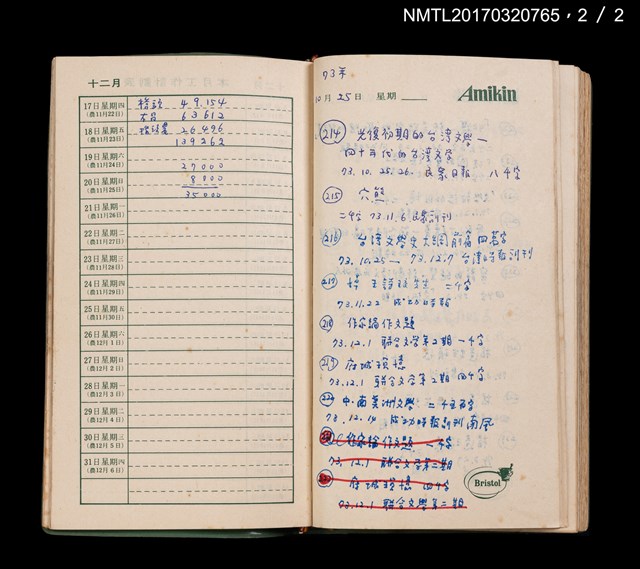 NMTL20170320765，2 / 2
十二月
17日星期四
(農11月22日)
49.154
63612
18日星期五
(農11月23日)
26496
139262
19日星期六
(農11月24日)
27000
20日星期日
(農11月25日)
8000
35000
21日星期一
(農11月26日)
22日星期二
(農11月27日)
23日星期三
(農11月28日)
24日星期四
(農11月29日)
25日星期五
(農11月30日)
26日星期六
(農12月1日)
27日星期日
(農12月2日)
28日星期一
(農12月3日)
29日星期二
(農12月4日)
30日星期三
(農12月5日)
31日星期四
(農12月6日)
73年
10月25日 星期
Amikin
(214) 光復初期的台湾文學—
四十年代的台湾文学
73.10.25.26. 民衆日报 八千字
(215) 穴熊
二千字 73.11.6 民衆副刊
(216) 台湾文學史大綱前篇四萬字
73.10.25— 73.12.7 台湾時報副刊
(217) 悼王詩琅先生 二千字
73.11.22 成功時報
(218) 作家論作文題
73.12.1 聯合文学第2期 一千字
(219) 府城瑣憶
73.12.1 聯合文学第2期 四千字
(220) 中・南美洲文學 二千五百字
73.12.14 成功時報副刊南風
作家論作文題 一千字
73.12.1 聯合文学第二期
府城瑣憶 四千字
73.12.1 聯合文學第二期
Bristol